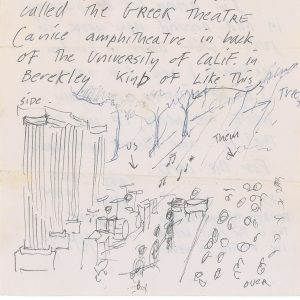 called the GREEK THEATRE
(a nice amphitheatre in back
of the University of Calif. in
Berekley Kind of Like This
side.
Trees
us
Them
over